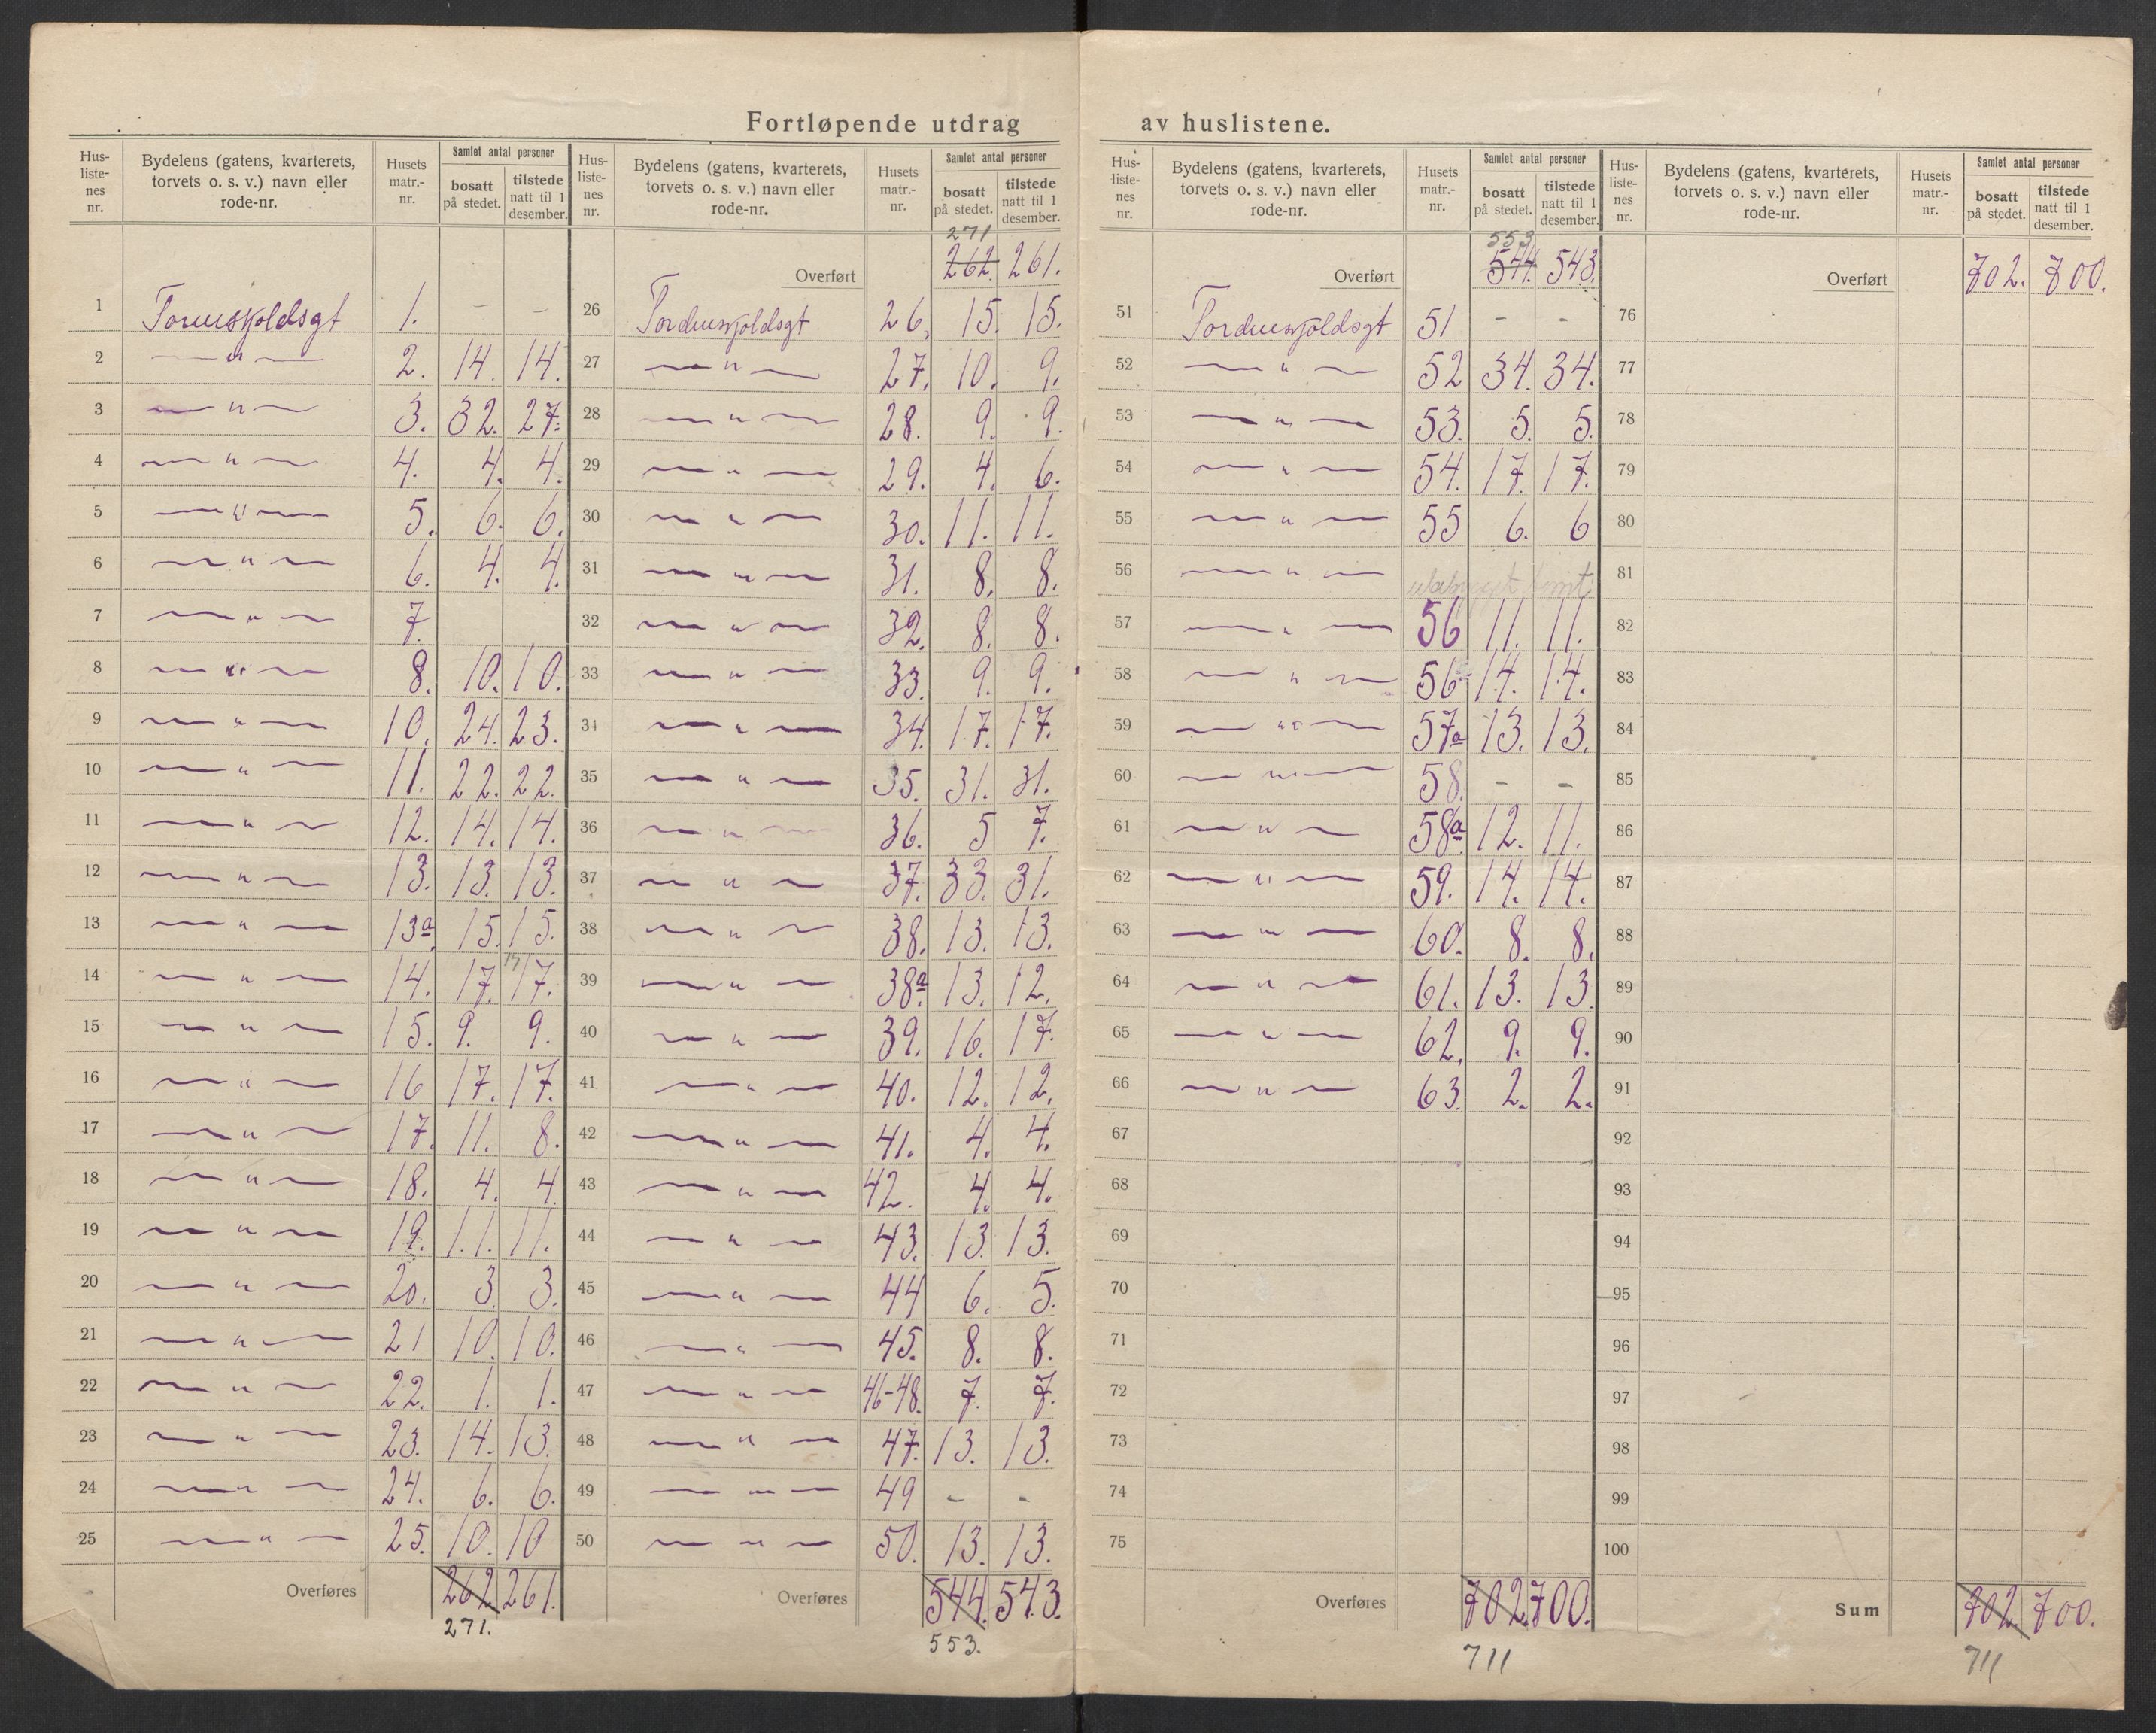 Fortløpende utdrag av huslistene.
Hus-liste-nes nr. Bydelens (gatens, kvarterets, torvets o. s. v.) navn eller rode-nr. Husets matr.-nr. Samlet antal personer bosatt på stedet. tilstede natt til 1 desember.
1 Tordenskjoldsgt 1. - -
2 —"— 2. 14. 14.
3 —"— 3. 32. 27.
4 —"— 4. 4. 4.
5 —"— 5. 6. 6.
6 —"— 6. 4. 4.
7 —"— 7.
8 —"— 8. 10. 10.
9 —"— 10. 24. 23.
10 —"— 11. 22. 22.
11 —"— 12. 14. 14.
12 —"— 13. 13. 13.
13 —"— 13a 15. 15.
14 —"— 14. 17. 17 17.
15 —"— 15. 9. 9.
16 —"— 16 17. 17.
17 —"— 17. 11. 8.
18 —"— 18. 4. 4
19 —"— 19. 11. 11.
20 —"— 20. 3. 3.
21 —"— 21 10. 10.
22 —"— 22. 1. 1.
23 —"— 23. 14. 13.
24 —"— 24. 6. 6.
25 —"— 25. 10. 10
Overføres 262. 261.
271.
Hus-liste-nes nr. Bydelens (gatens, kvarterets, torvets o. s. v.) navn eller rode-nr. Husets matr.-nr. Samlet antal personer bosatt på stedet. tilstede natt til 1 desember.
271
Overført 262. 261.
26 Tordenskjoldsgt 26, 15. 15.
27 —"— 27. 10. 9.
28 —"— 28. 9. 9.
29 —"— 29. 4. 6.
30 —"— 30. 11. 11.
31 —"— 31. 8. 8.
32 —"— 32. 8. 8.
33 —"— 33. 9. 9.
34 —"— 34. 17. 17.
35 —"— 35. 31. 31.
36 —"— 36. 5 7.
37 —"— 37. 33. 31.
38 —"— 38. 13. 13.
39 —"— 38a. 13. 12.
40 —"— 39. 16. 17.
41 —"— 40. 12. 12.
42 —"— 41. 4. 4.
43 —"— 42. 4. 4.
44 —"— 43. 13. 13.
45 —"— 44 6. 5.
46 —"— 45. 8. 8.
47 —"— 46-48. 7. 7.
48 —"— 47. 13. 13.
49 —"— 49 - -
50 —"— 50. 13. 13.
Overføres 544. 543.
553.
Hus-liste-nes nr. Bydelens (gatens, kvarterets, torvets o. s. v.) navn eller rode-nr. Husets matr.-nr. Samlet antal personer bosatt på stedet. tilstede natt til 1 desember.
553
Overført 544. 543.
51 Tordenskjoldsgt 51 - -
52 —"— 52 34. 34.
53 —"— 53. 5. 5.
54 —"— 54. 17. 17.
55 —"— 55 6. 6
56 —"— ubebygget tomt
57 —"— 56 11. 11.
58 —"— 56a 14. 14.
59 —"— 57a 13. 13.
60 —"— 58. - -
61 —"— 58a 12. 11.
62 —"— 59. 14. 14.
63 —"— 60. 8. 8.
64 —"— 61. 13. 13
65 —"— 62. 9. 9.
66 —"— 63. 2. 2.
67
68
69
70
71
72
73
74
75
Overføres 702. 700.
711
Hus-liste-nes nr. Bydelens (gatens, kvarterets, torvets o. s. v.) navn eller rode-nr. Husets matr.-nr. Samlet antal personer bosatt på stedet. tilstede natt til 1 desember.
Overført 702. 700.
76
77
78
79
80
81
82
83
84
85
86
87
88
89
90
91
92
93
94
95
96
97
98
99
100
Sum 702. 700.
711